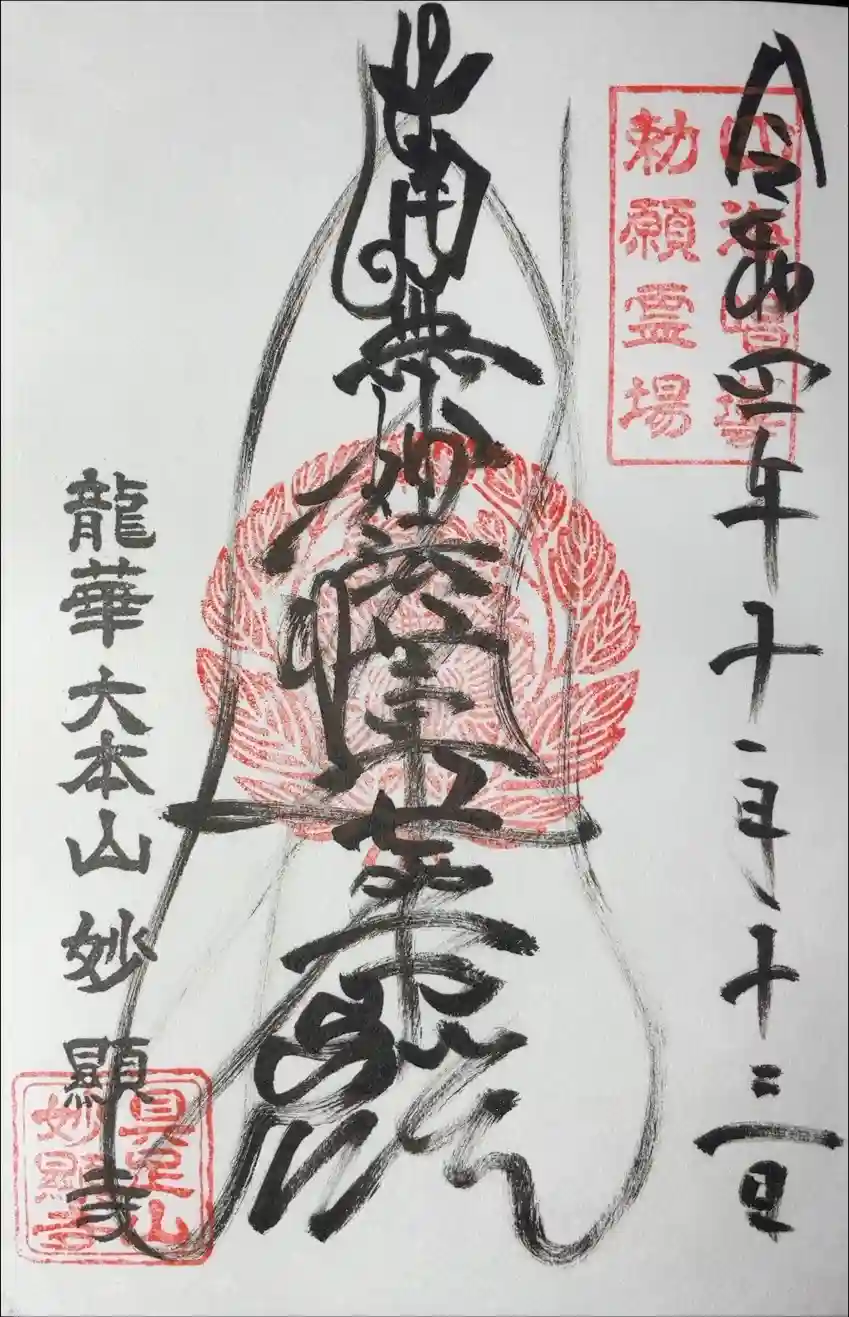 令和三年十一月十三日
四海唱導
勅願霊場
南無妙法蓮華経
龍華大本山妙顯寺
具足山
妙顯寺